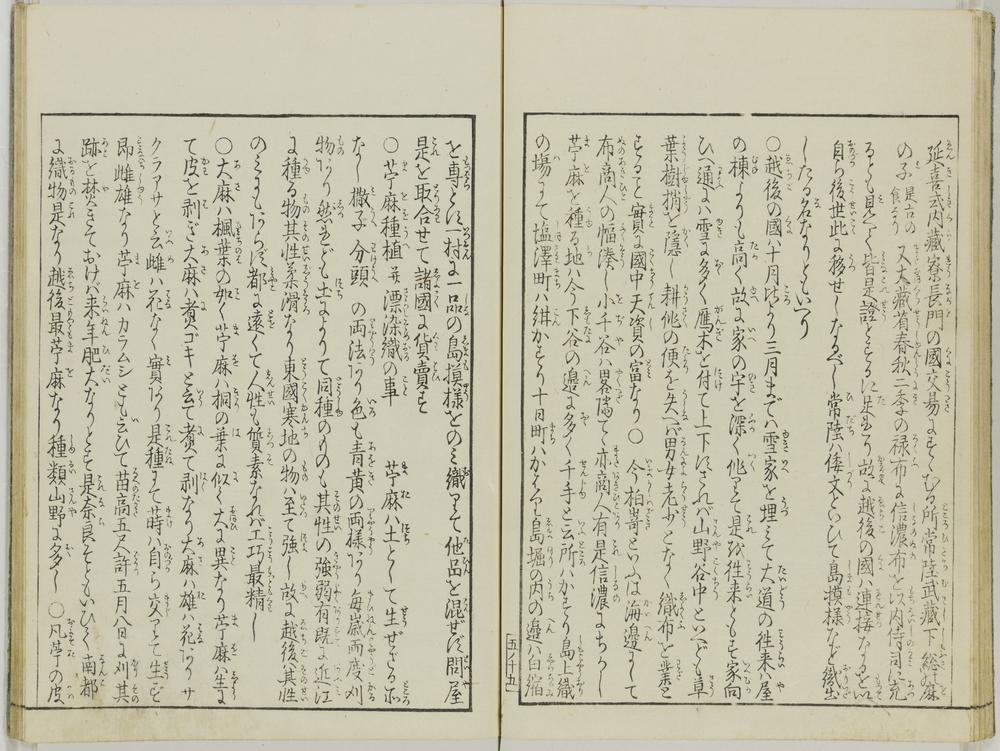 延喜式内藏寮長門の國交易にすゝむる所常陸武藏下総の麻
の子 是古の食なり 又大藏省春秋二季の禄布に信濃布を以内侍司に充
るも見へて皆是證とするに足る故に越後の國ハ連接なるをい
自ら後世此に移せしなるべし常陸ハ倭文といひて島摸様など織出
したる名なりともいへり
〇越後の國ハ十月比より三月までハ雪家を埋ミて大道の徃来ハ屋
の棟よりも高く故に家の宇を深く作りて是を徃来とも家向
ひへ通にハ雪に多く鷹木を付て上下にされバ山野谷中といへども草
葉樹梢を隠し耕作の便を失へバ男女老少となく織布を業と
すること實に國中天資の富なり〇今柏嵜といへるは海邉にして
布商人の幅湊し小千谷ハ畧隔て亦商人有是信濃よちかし
苧麻を種る地ハ今下谷の邉に多く千手と云所ハかすり島上織
の塲にて塩澤町ハ紺かすり十日町ハかはり島堀の内の邉ハ白縮
五ノ十五
を専とし一村に一品の島摸様をのミ織りて他品を混ぜだ問屋
是を取合せて諸國に貨賣す
〇苧麻種植并漂染織の事 苧麻ハ土として生ぜざる所
なし撒子分頭の両法あり色も青黄の両様あり毎歳両度刈
物あり然れども土によりて同種のものも其性の強弱有既に近江
に種る物其性柔滑なり東國寒地の物ハ至て強し故に越後ハ其性
のミにもあらず都に遠くて人性も質素なれバ工巧最精し
〇大麻ハ楓葉の如く苧麻ハ桐の葉に似て大に異なり苧麻ハ生に
て皮を剥ぎ大麻ハ煮コキと云て煮て剥なり大麻ハ雄ハ花ありサ
クラアサと云雌ハ花なく實あり是種にて蒔ハ自ら交りて生ず
即雌雄なり苧麻ハカラムシともいひて苗高五尺許五月八日に刈其
跡を焚きておけバ来年肥大なりとぞ是奈良そともいひて南都
に織物是なり越後最苧麻なり種類山野に多し 〇凡苧の皮